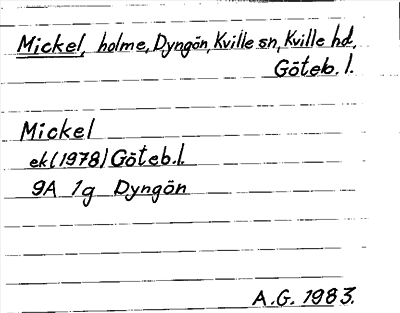 Mickel, holme, Dyngön, Kville sn, Kville hd.
Göteb. l.
Mickel
ek (1978) Göteb. l.
9A 1g Dyngön
A.G. 1983.